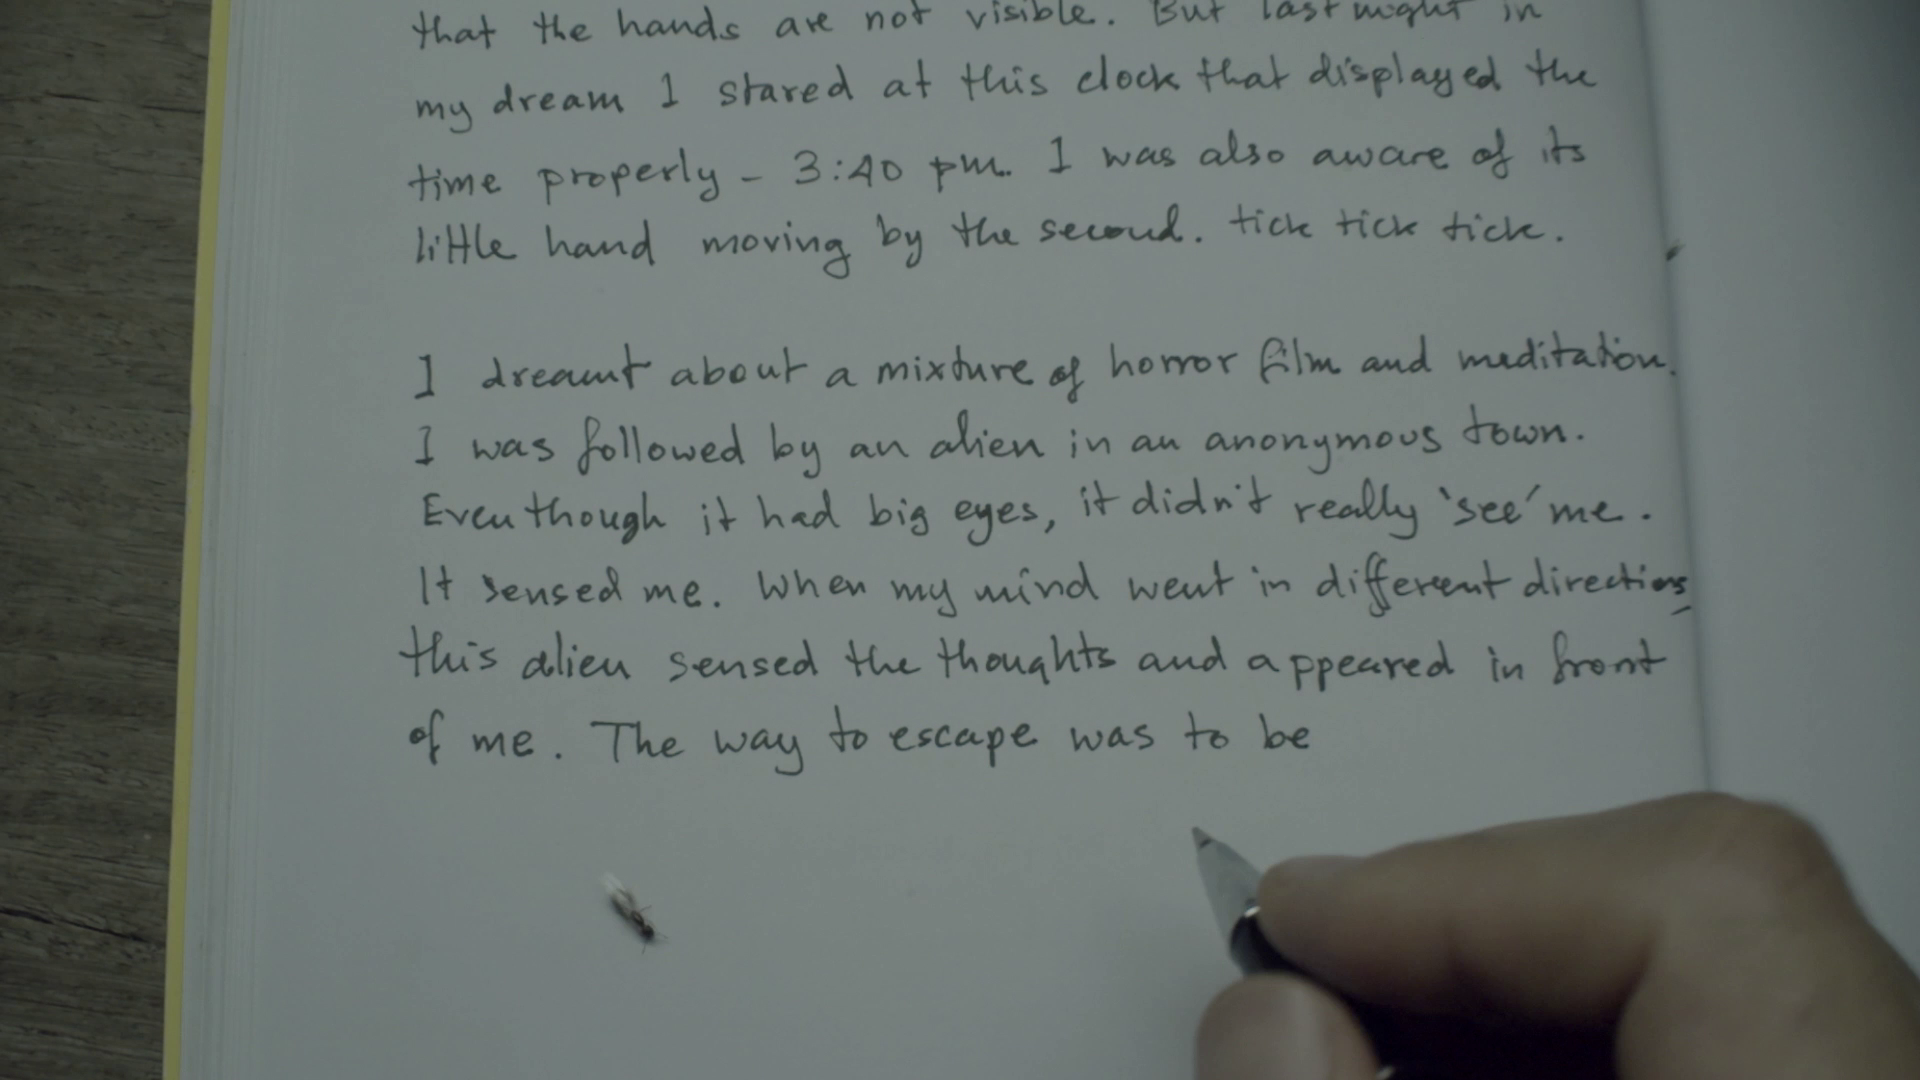 that the hands are not visible. But last night in
my dream I stared at this clock that displayed the
time properly - 3:40 pm. I was also aware of its
little hand moving by the second. tick tick tick.
I dreamt about a mixture of horror film and meditation.
I was followed by an alien in an anonymous town.
Eventhough it had big eyes, it didn't really 'see' me.
It sensed me. When my mind went in different directions
this alien sensed the thoughts and appeared in front
of me. The way to escape was to be